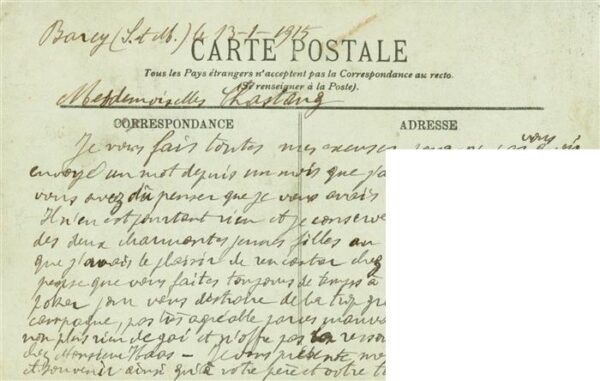 Barcy (S. et M.) le 13-1-1915
CARTE POSTALE
Tous les Pays étrangers n'acceptent pas la Correspondance au recto.
(Se renseigner à la Poste).
Mesdemoiselles Chastang
CORRESPONDANCE
ADRESSE
Je vous fais toutes mes excuses vous
envoyé un mot depuis un mois que j'a
vous avez dû penser que je vous avais
Il n'en est pourtant rien et je conserve
des deux charmantes jeunes filles au
que j'avais le plaisir de rencontrer chez
pense que vous faites toujours de temps à
poker pour vous distraire de la trop gr
campagne, pas très agréable par ces mauva
non plus rien de gai et n'offre pas la resso
chez Monsieur Haas - Je vous présente me
et souvenir ainsi qu'à votre père et votre t